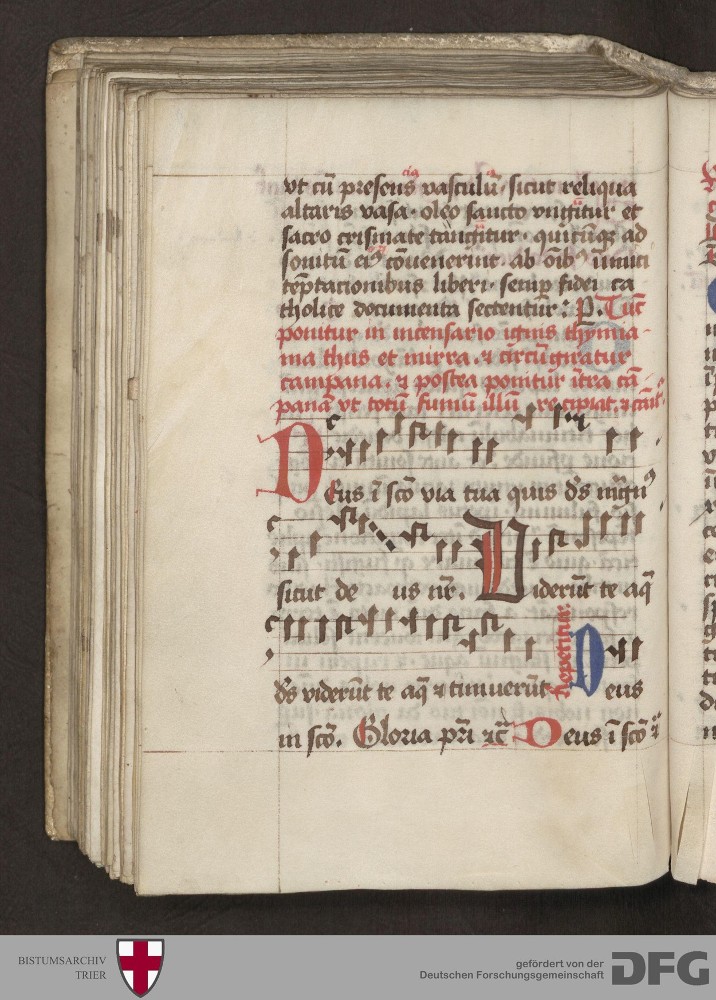 vt cū presens vasculū · sicut reliqua
altaris vasa · oleo sancto vngitur et
sacro crismate tangitur · quicūqȝ ad
sonitū eiꝰ cōuenerint · ab oībꝰ inimici
tēptacionibus liberi · semp fidei ca
tholice documenta sectentur : P. Tūc
ponitur in incensario ignis thymia-
ma thus et mirra · ⁊ circūgiratur
campana · ⁊ postea ponitur ītra cā
panā vt totū fumū illū recipiat ·
Deus ī scō via tua quis ds magnꝰ
sicut de us nr̄. Viderūt te aq̄
ds viderūt te aq̄ ⁊ timuerūt Repetitur. Deus
in scō. Gloria pr̄i ⁊c̄ Deus ī scō
BISTUMSARCHIV
TRIER
gefördert von der
Deutschen Forschungsgemeinschaft
DFG